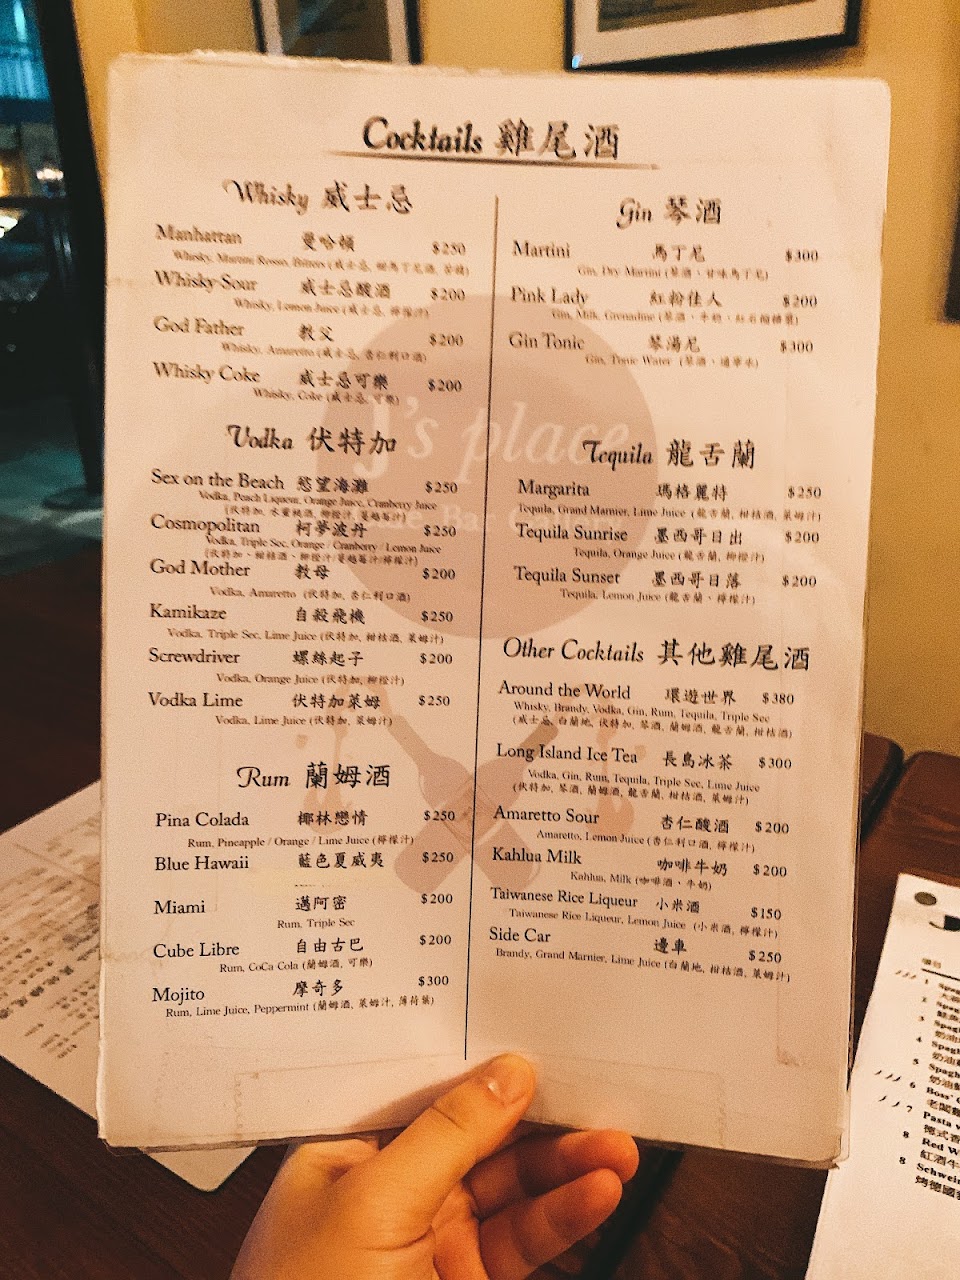 Cocktails 雞尾酒
Whisky 威士忌
Manhattan 曼哈頓 $250
Whisky, Martini Rosso, Bitters (威士忌, 甜馬丁尼酒, 苦精)
Whisky Sour 威士忌酸酒 $200
Whisky, Lemon Juice (威士忌, 檸檬汁)
God Father 教父 $200
Whisky, Amaretto (威士忌, 杏仁利口酒)
Whisky Coke 威士忌可樂 $200
Whisky, Coke (威士忌, 可樂)
Vodka 伏特加
Sex on the Beach 慾望海灘 $250
Vodka, Peach Liqueur, Orange Juice, Cranberry Juice
(伏特加, 水蜜桃酒, 柳橙汁, 蔓越莓汁)
Cosmopolitan 柯夢波丹 $250
Vodka, Triple Sec, Orange / Cranberry / Lemon Juice
(伏特加、柑桔酒、柳橙汁/蔓越莓汁/檸檬汁)
God Mother 教母 $200
Vodka, Amaretto (伏特加, 杏仁利口酒)
Kamikaze 自殺飛機 $250
Vodka, Triple Sec, Lime Juice (伏特加, 柑桔酒, 萊姆汁)
Screwdriver 螺絲起子 $200
Vodka, Orange Juice (伏特加, 柳橙汁)
Vodka Lime 伏特加萊姆 $250
Vodka, Lime Juice (伏特加, 萊姆汁)
Rum 蘭姆酒
Pina Colada 椰林戀情 $250
Rum, Pineapple / Orange / Lime Juice (檸檬汁)
Blue Hawaii 藍色夏威夷 $250
Miami 邁阿密 $200
Rum, Triple Sec
Cube Libre 自由古巴 $200
Rum, CoCa Cola (蘭姆酒, 可樂)
Mojito 摩奇多 $300
Rum, Lime Juice, Peppermint (蘭姆酒, 萊姆汁, 薄荷葉)
Gin 琴酒
Martini 馬丁尼 $300
Gin, Dry Martini (琴酒、甘味馬丁尼)
Pink Lady 紅粉佳人 $200
Gin, Milk, Grenadine (琴酒、牛奶、紅石榴糖漿)
Gin Tonic 琴湯尼 $300
Gin, Tonic Water (琴酒、通寧水)
J's place
Tequila 龍舌蘭
Margarita 瑪格麗特 $250
Tequila, Grand Marnier, Lime Juice (龍舌蘭, 柑桔酒, 萊姆汁)
Tequila Sunrise 墨西哥日出 $200
Tequila, Orange Juice (龍舌蘭, 柳橙汁)
Tequila Sunset 墨西哥日落 $200
Tequila, Lemon Juice (龍舌蘭、檸檬汁)
Other Cocktails 其他雞尾酒
Around the World 環遊世界 $380
Whisky, Brandy, Vodka, Gin, Rum, Tequila, Triple Sec
(威士忌, 白蘭地, 伏特加, 琴酒, 蘭姆酒, 龍舌蘭, 柑桔酒)
Long Island Ice Tea 長島冰茶 $300
Vodka, Gin, Rum, Tequila, Triple Sec, Lime Juice
(伏特加, 琴酒, 蘭姆酒, 龍舌蘭, 柑桔酒, 萊姆汁)
Amaretto Sour 杏仁酸酒 $200
Amaretto, Lemon Juice (杏仁利口酒, 檸檬汁)
Kahlua Milk 咖啡牛奶 $200
Kahlua, Milk (咖啡酒、牛奶)
Taiwanese Rice Liqueur 小米酒 $150
Taiwanese Rice Liqueur, Lemon Juice (小米酒, 檸檬汁)
Side Car 邊車 $250
Brandy, Grand Marnier, Lime Juice (白蘭地, 柑桔酒, 萊姆汁)
1
2
3
4
5
6 Boss'
7 Pasta
8 Red W
紅酒牛
8 Schwein
烤德國